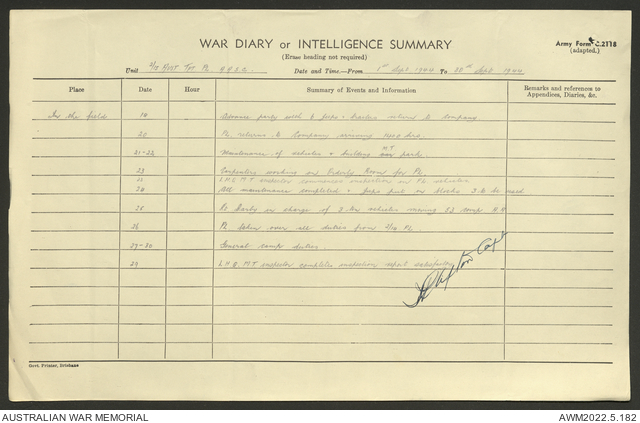 WAR DIARY or INTELLIGENCE SUMMARY
Army Form C.2118
(adapted.)
(Erase heading not required)
Unit Tpt Pl. Date and Time.—From 1st Sept 1944 To 30th Sept 1944
Place Date Hour Summary of Events and Information Remarks and references to Appendices, Diaries, &c.
In the field 18 Advance party with 6 jeeps & trailers returns to Company.
20 Pl. returns to Company arriving hrs.
21-22 Maintenance of vehicles & building MT car park.
23 Carpenters working on Orderly Room for Pl.
L.H.Q. M.T. inspector commences inspection on Pl vehicles
24 All maintenance completed & jeeps put on blocks. 3 to be used
25 in charge of 3 ton vehicles moving comp H.Q
26 Pl. takes over all duties from Pl.
27-30 General camp duties.
29 L.H.Q. M.T. inspector completes inspection report satisfactory
Capt
Govt. Printer, Brisbane
AUSTRALIAN WAR MEMORIAL
AWM2022.5.182